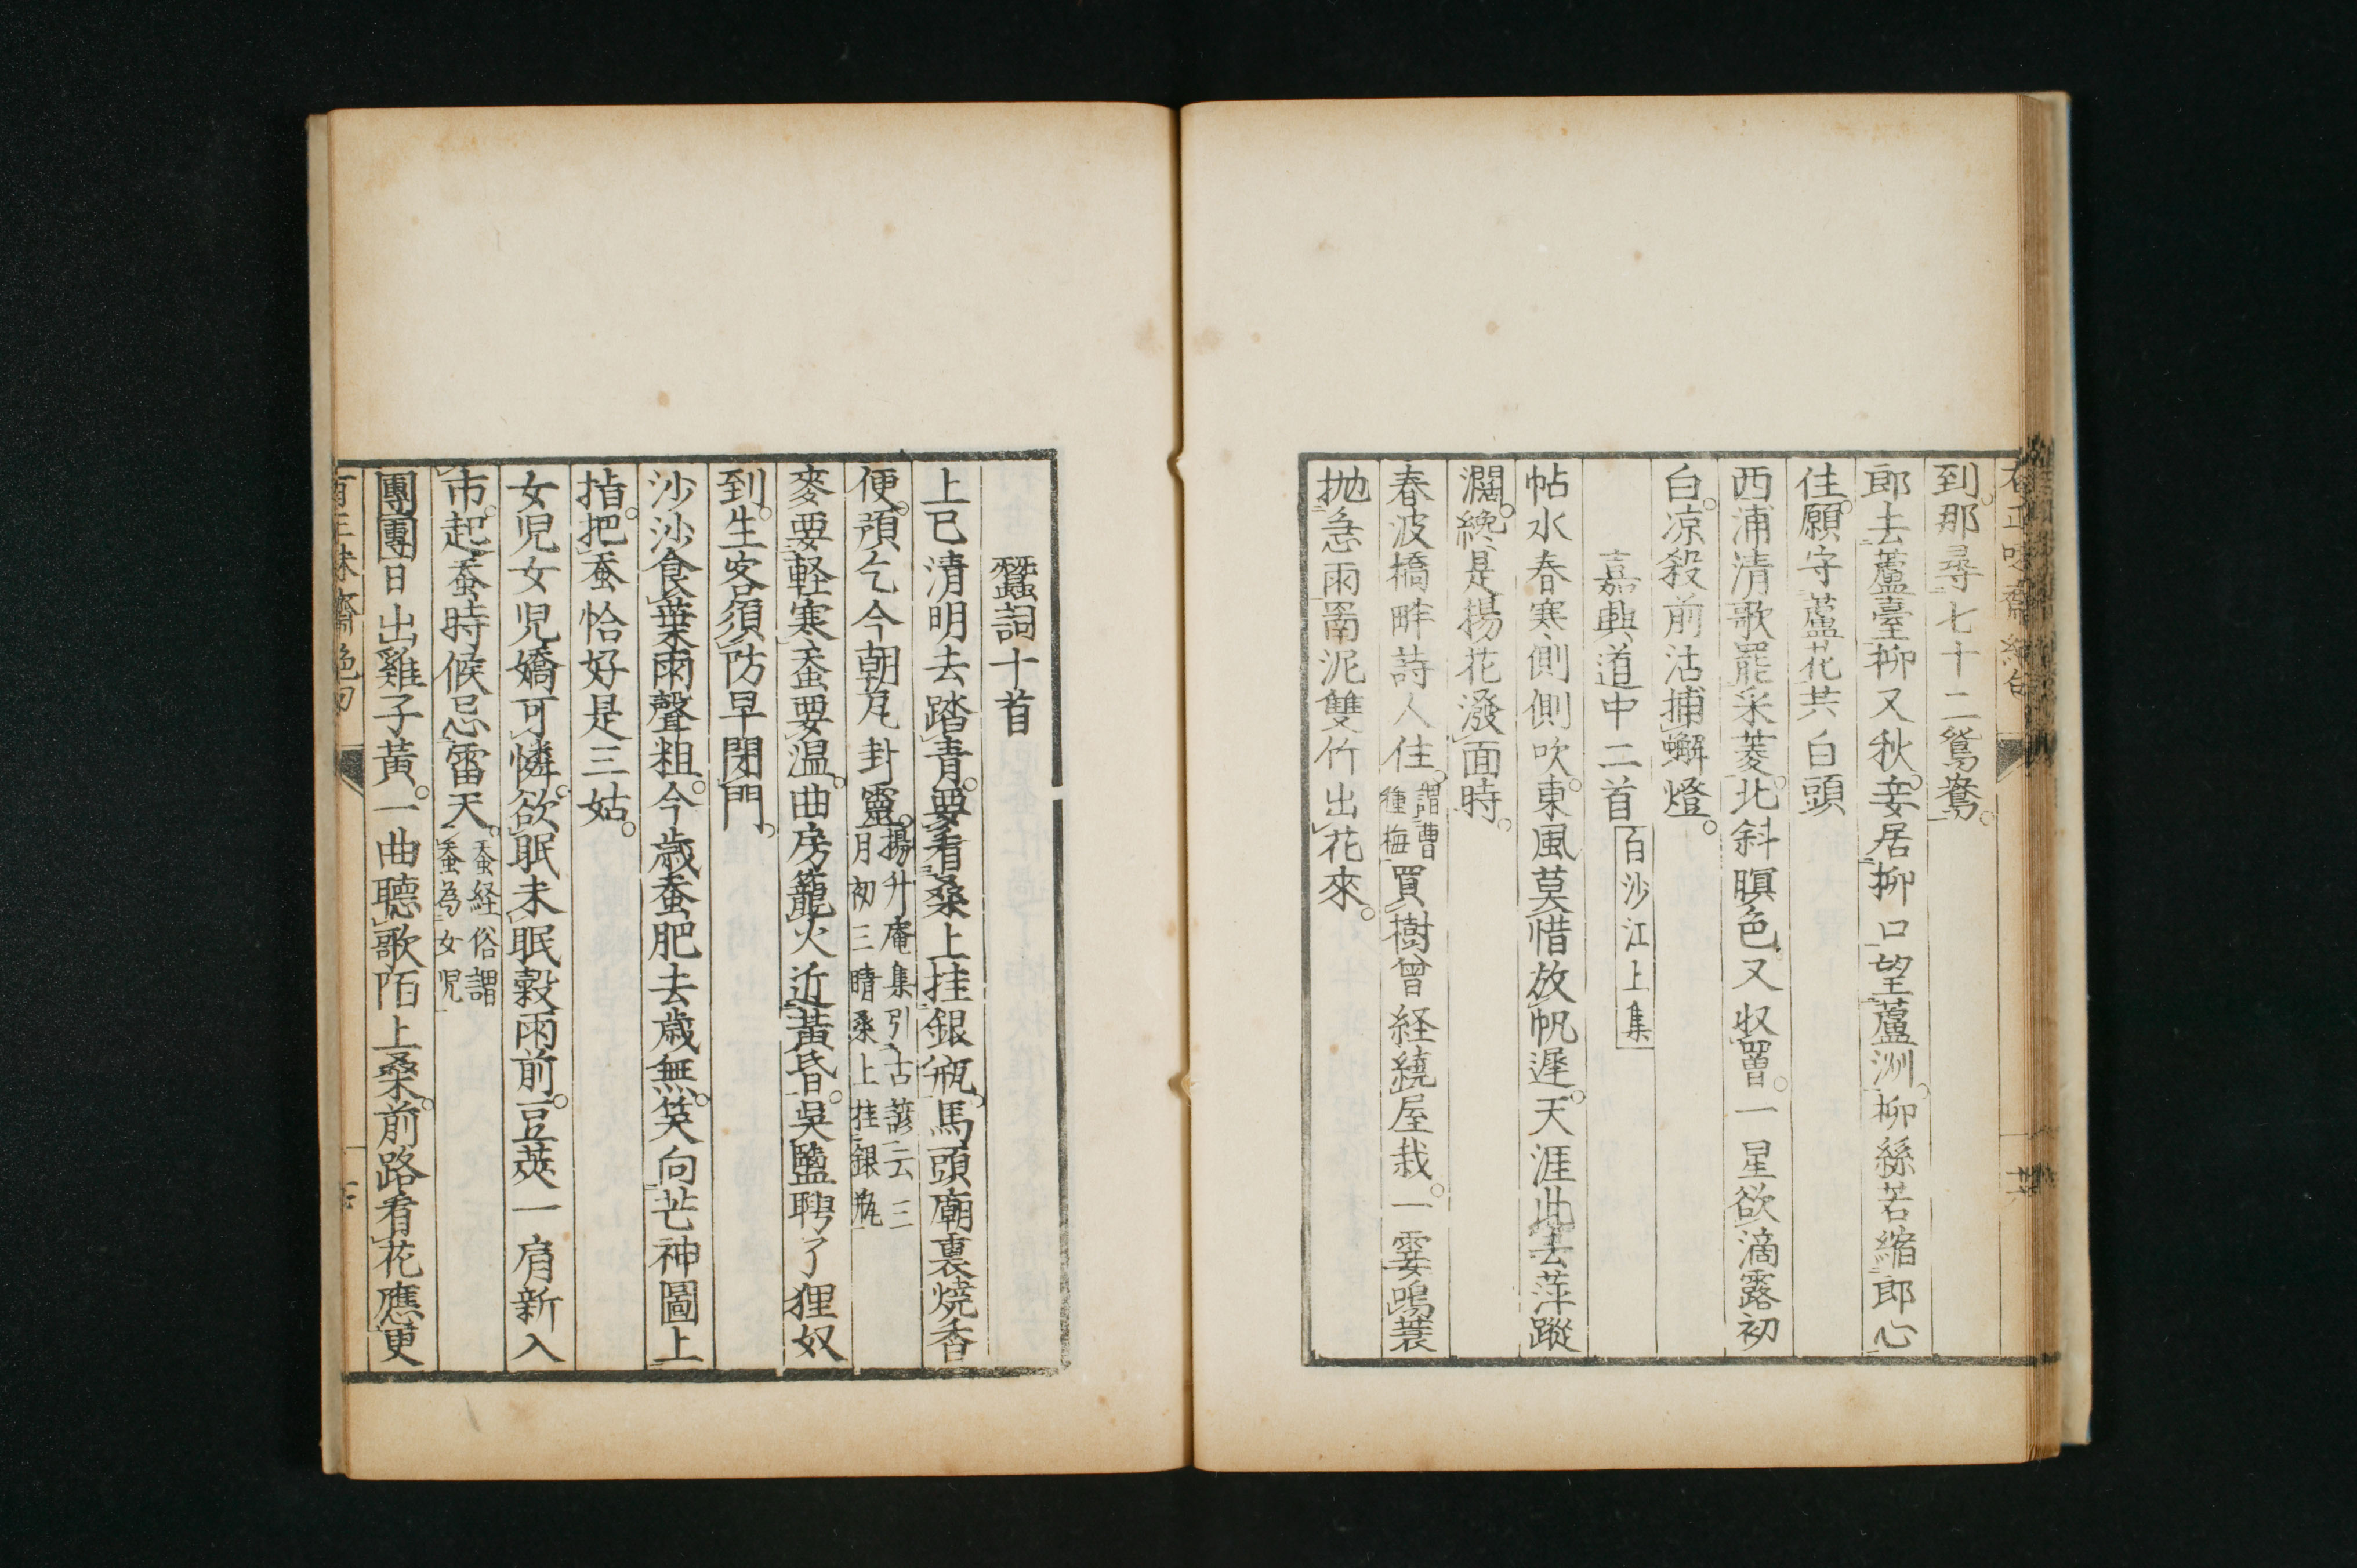 到那尋七十二鴛鴦
郎去蘆臺柳又秋妾居柳口望蘆洲柳絲若綰郎心
住願守蘆花共白頭
西浦清歌罷采菱北斜瞑色又收罾一星欲滴露初
白凉殺前沽捕蠏燈
嘉興道中二首 百沙江上集
帖水春寒側側吹東風莫惜放帆遲天涯此去萍蹤
濶纔是揚花潑面時
春波橋畔詩人住謂曹種梅買樹曾経繞屋栽一霎鳴蓑
抛急雨罱泥雙竹出花來
蠶詞十首
上巳清明去踏青要看桑上挂銀瓶馬頭廟裏焼香
便預乞今朝瓦封靈揚升庵集引古諺云三月初三晴桑上挂銀瓶
麥要軽寒蚕要温曲房籠火近黃昏吳鹽聘了狸奴
到生客須防早閉門
沙沙食葉雨聲粗今歲蚕肥去歲無笑向芒神圖上
指把蚕恰好是三姑
女児女児嬌可憐欲眠未眠穀雨前豆莢一肩新入
市起蚕時候忌雷天蚕経俗謂蚕為女児
團團日出雞子黃一曲聽歌陌上桑前路看花應更